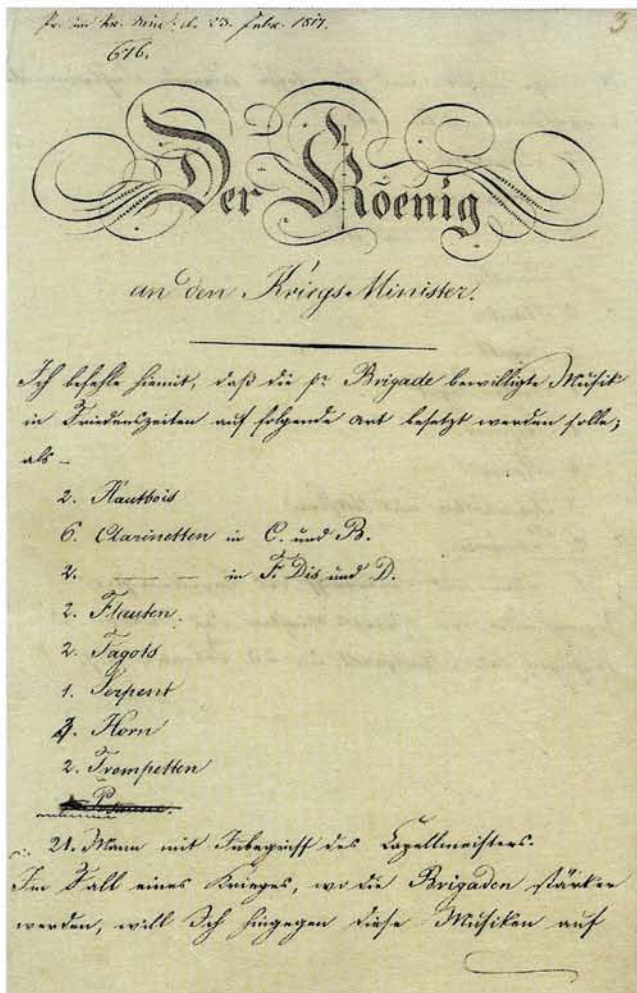 pr. im Kr. Min: d. 23. Febr. 1817.
3
676.
Der Koenig
an den Kriegs-Minister.
Ich befehle hiemit, daß die pr Brigade bewilligte Musik
in Friedenszeiten auf folgende Art besetzt werden solle;
als -
2. Hautbois
6. Clarinetten in C. und B.
2. — — in F. Dis und D.
2. Flauten.
2. Fagots
1. Serpent
4. Horn
2. Trompetten
21. Mann mit Inbegriff des Capellmeisters.
Im Fall eines Krieges, wo die Brigaden stärker
werden, will Ich hingegen diese Musiken auf